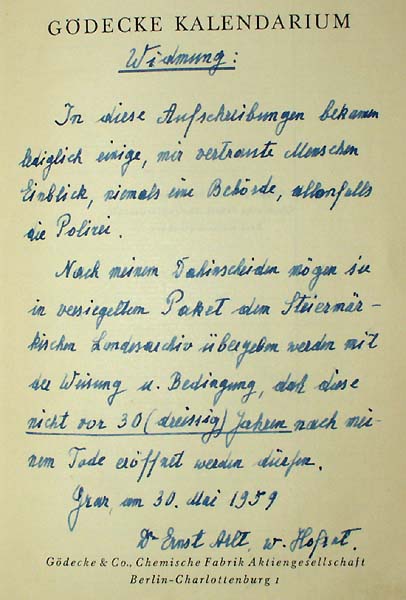 GÖDECKE KALENDARIUM
Widmung:
In diese Aufschreibungen bekamen
lediglich einige, mir vertraute Menschen
Einblick, niemals eine Behörde, allenfalls
die Polizei.
Nach meinem Dahinscheiden mögen sie
in versiegeltem Paket dem Steiermär-
kischen Landesarchiv übergeben werden mit
der Weisung u. Bedingung, daß diese
nicht vor 30 (dreissig) Jahren nach mei-
nem Tode eröffnet werden dürfen.
Graz, am 30. Mai 1959
Dr Ernst Arlt, w. Hofrat.
Gödecke & Co., Chemische Fabrik Aktiengesellschaft
Berlin-Charlottenburg 1